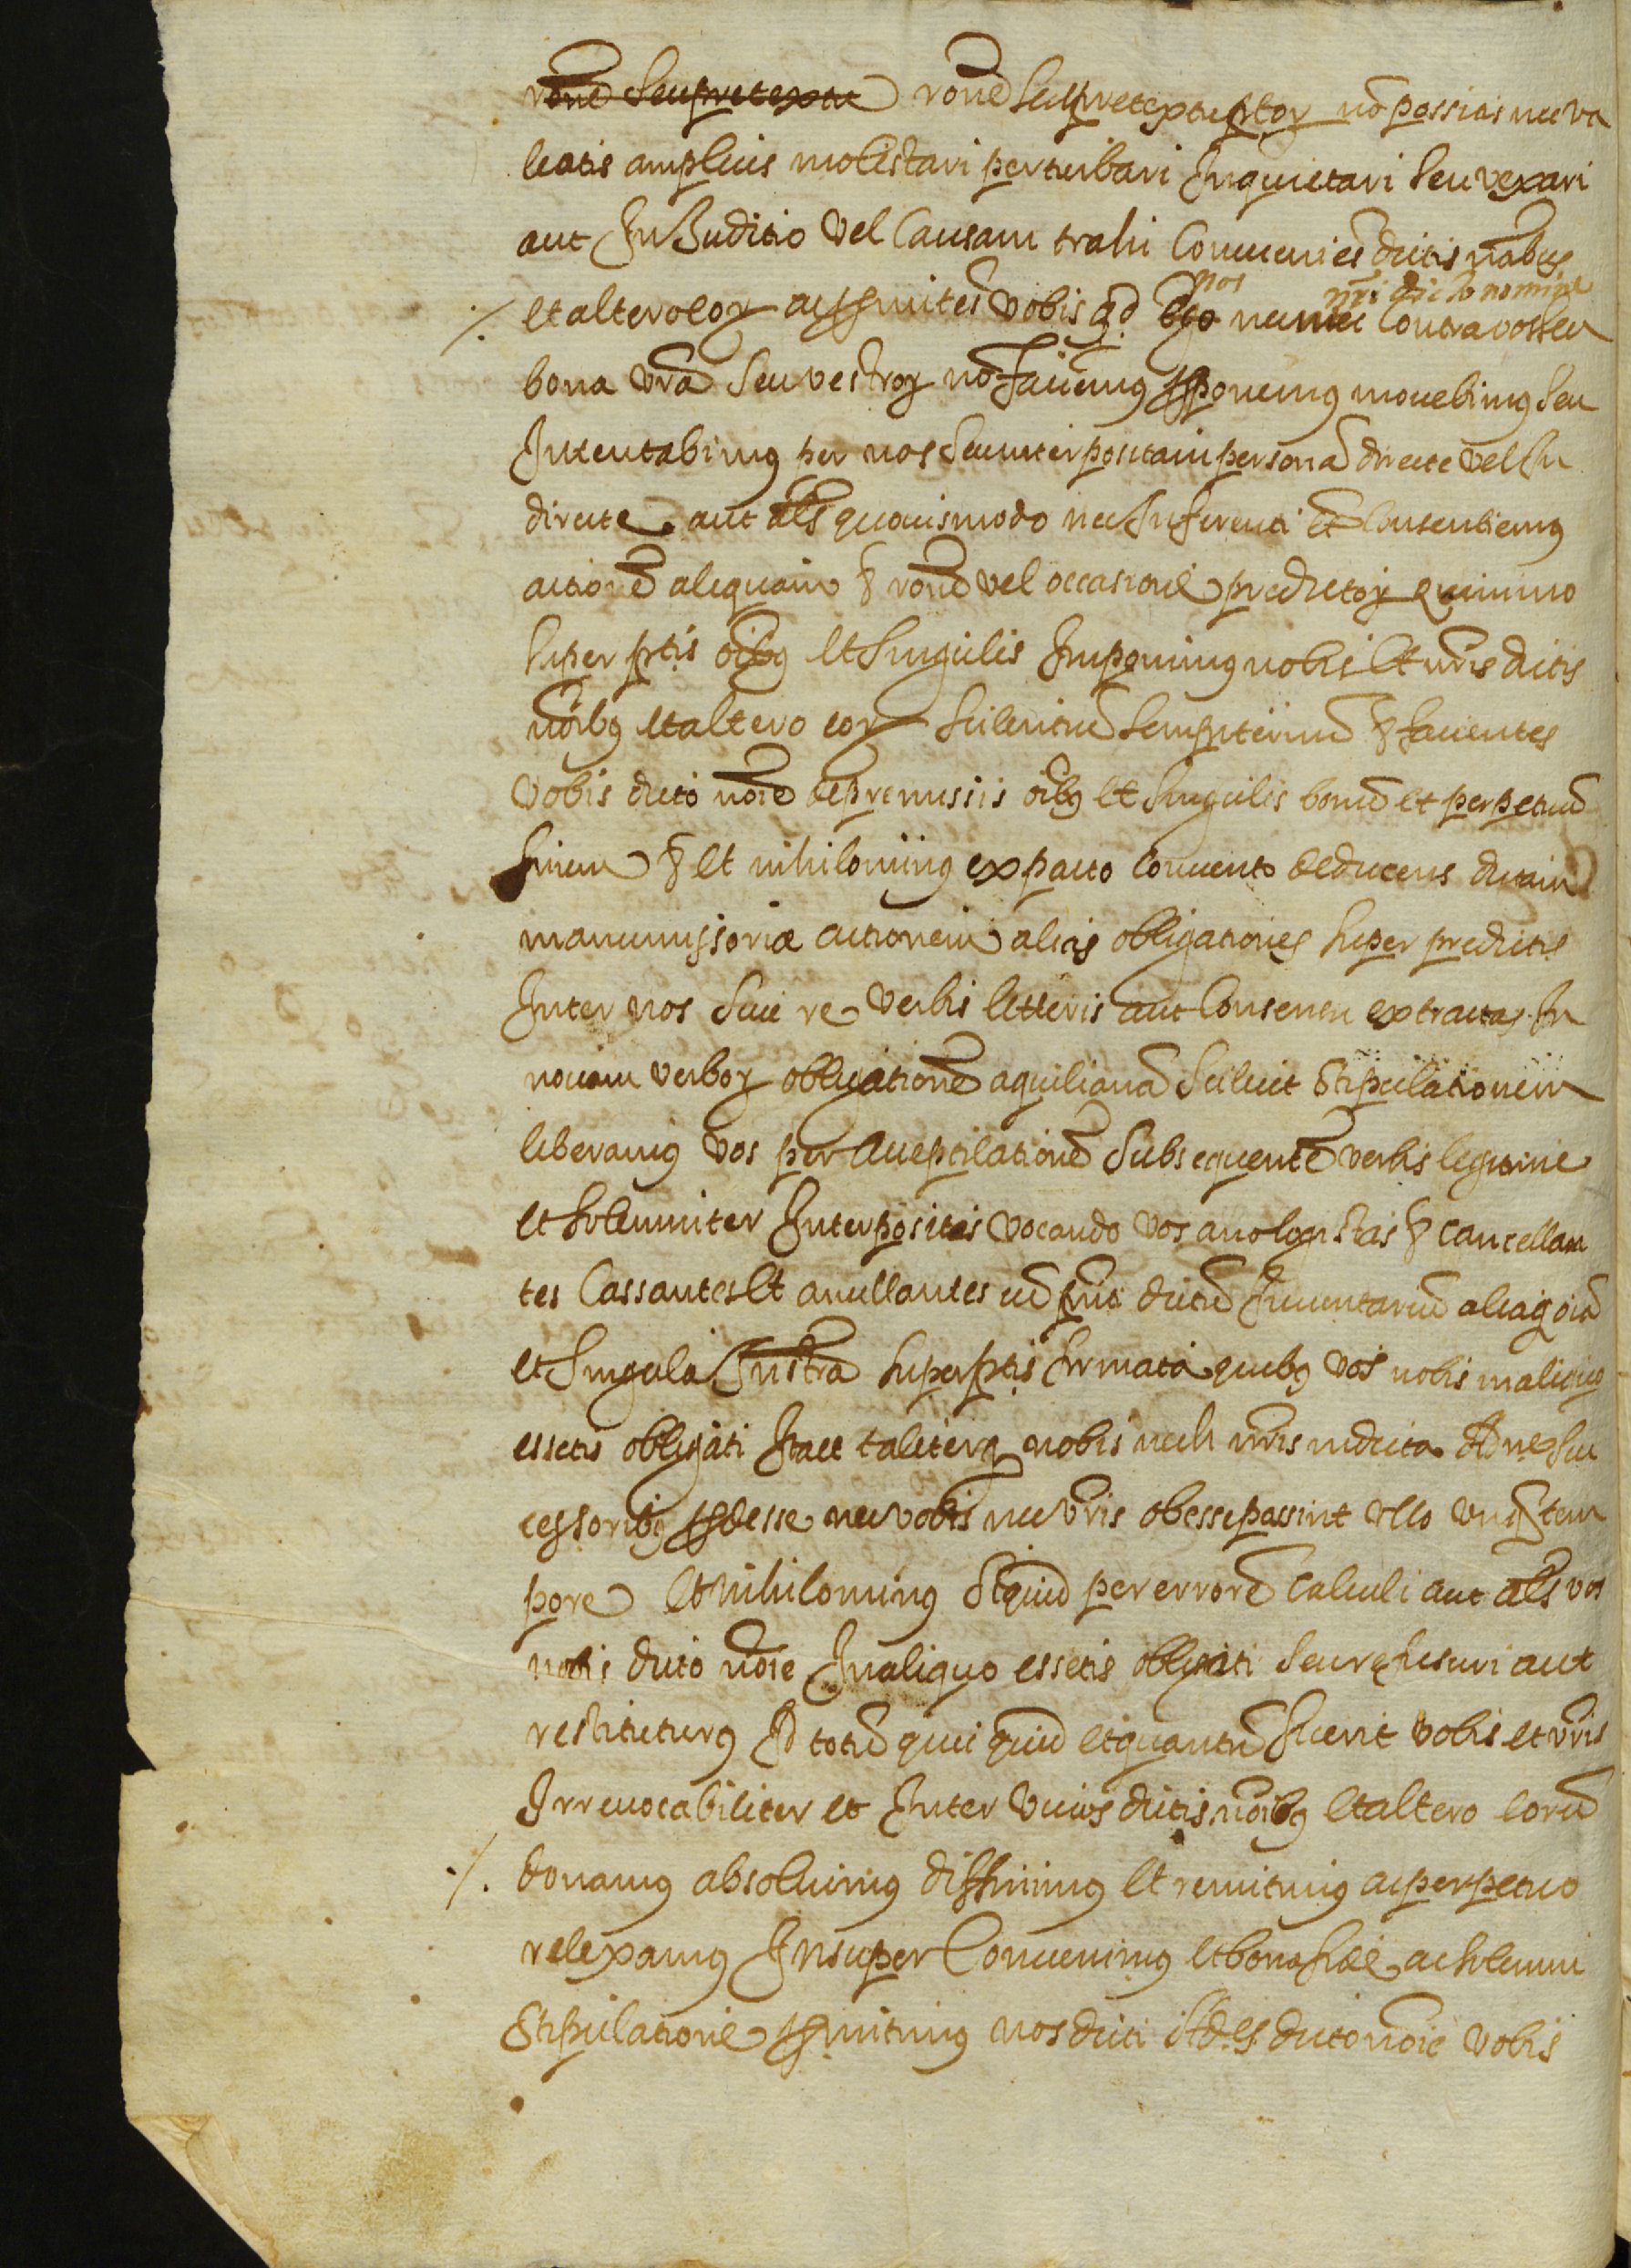 rone seu pretextu rone seu pretextu ptor no possitis nec va
leatis amplius molestari perturbari Inquietari seu vexari
aut In Juditio vel Causam trahi Convenien dictis noibus
nos nri dicto nomine
et altero eor ac promiten vobis qd ego nec mei Contra vos seu
bona vra seu vestror no faciemus proponemus movebimus seu
Intentabimus per nos seu interpositam persona directe vel In
directe aut als quovismodo nec Inferenti Consentiemus
actione aliquam & rone vel occasione predictor quinimo
super ptis oibus et singulis Imponimus nobis et nris dictis
noibus et altero eor scilentiu sempiternu & facientes
vobis dicto noie de premissis oibus et singulis bonu et perpetuu
finem & et nihilominus ex pacto convento deducens dictam
manumissoriæ actionem alias obligationes super predictis
Inter nos sive re verbis litteris aut Consensu extractas In
novam verbor obligatione aquiliana scilicet Stipulationem
liberamus vos per acceptilatione subsequente verbis legitime
et solemniter Interpositis vocando vos apologistas & cancellan
tes Cassantes et anullantes cu pnti dictu Inventariu aliaq oia
et singula Instra super ptis firmata quibus vos nobis in aliquo
essetis obligati Ita et taliterq nobis nec nris in dicta suc
cessoribus prodesse nec vobis nec vris obesse possint ullo unq tem
pore Et nihilominus Si quid per errore calculi aut als vos
nobis dicto noie In aliquo essetis obligati seu refusuri aut
restituturus Id totu quicquid et quantu fuerit vobis et vris
Irrevocabiliter et Inter vivos dictis noibus et altero eoru
donamus absolvimus diffinimus et remitimus ac perpetuo
relexamus Insuper Convenimus et bona fide ac solemni
Stipulatione promitimus nos dicti dicto noie vobis